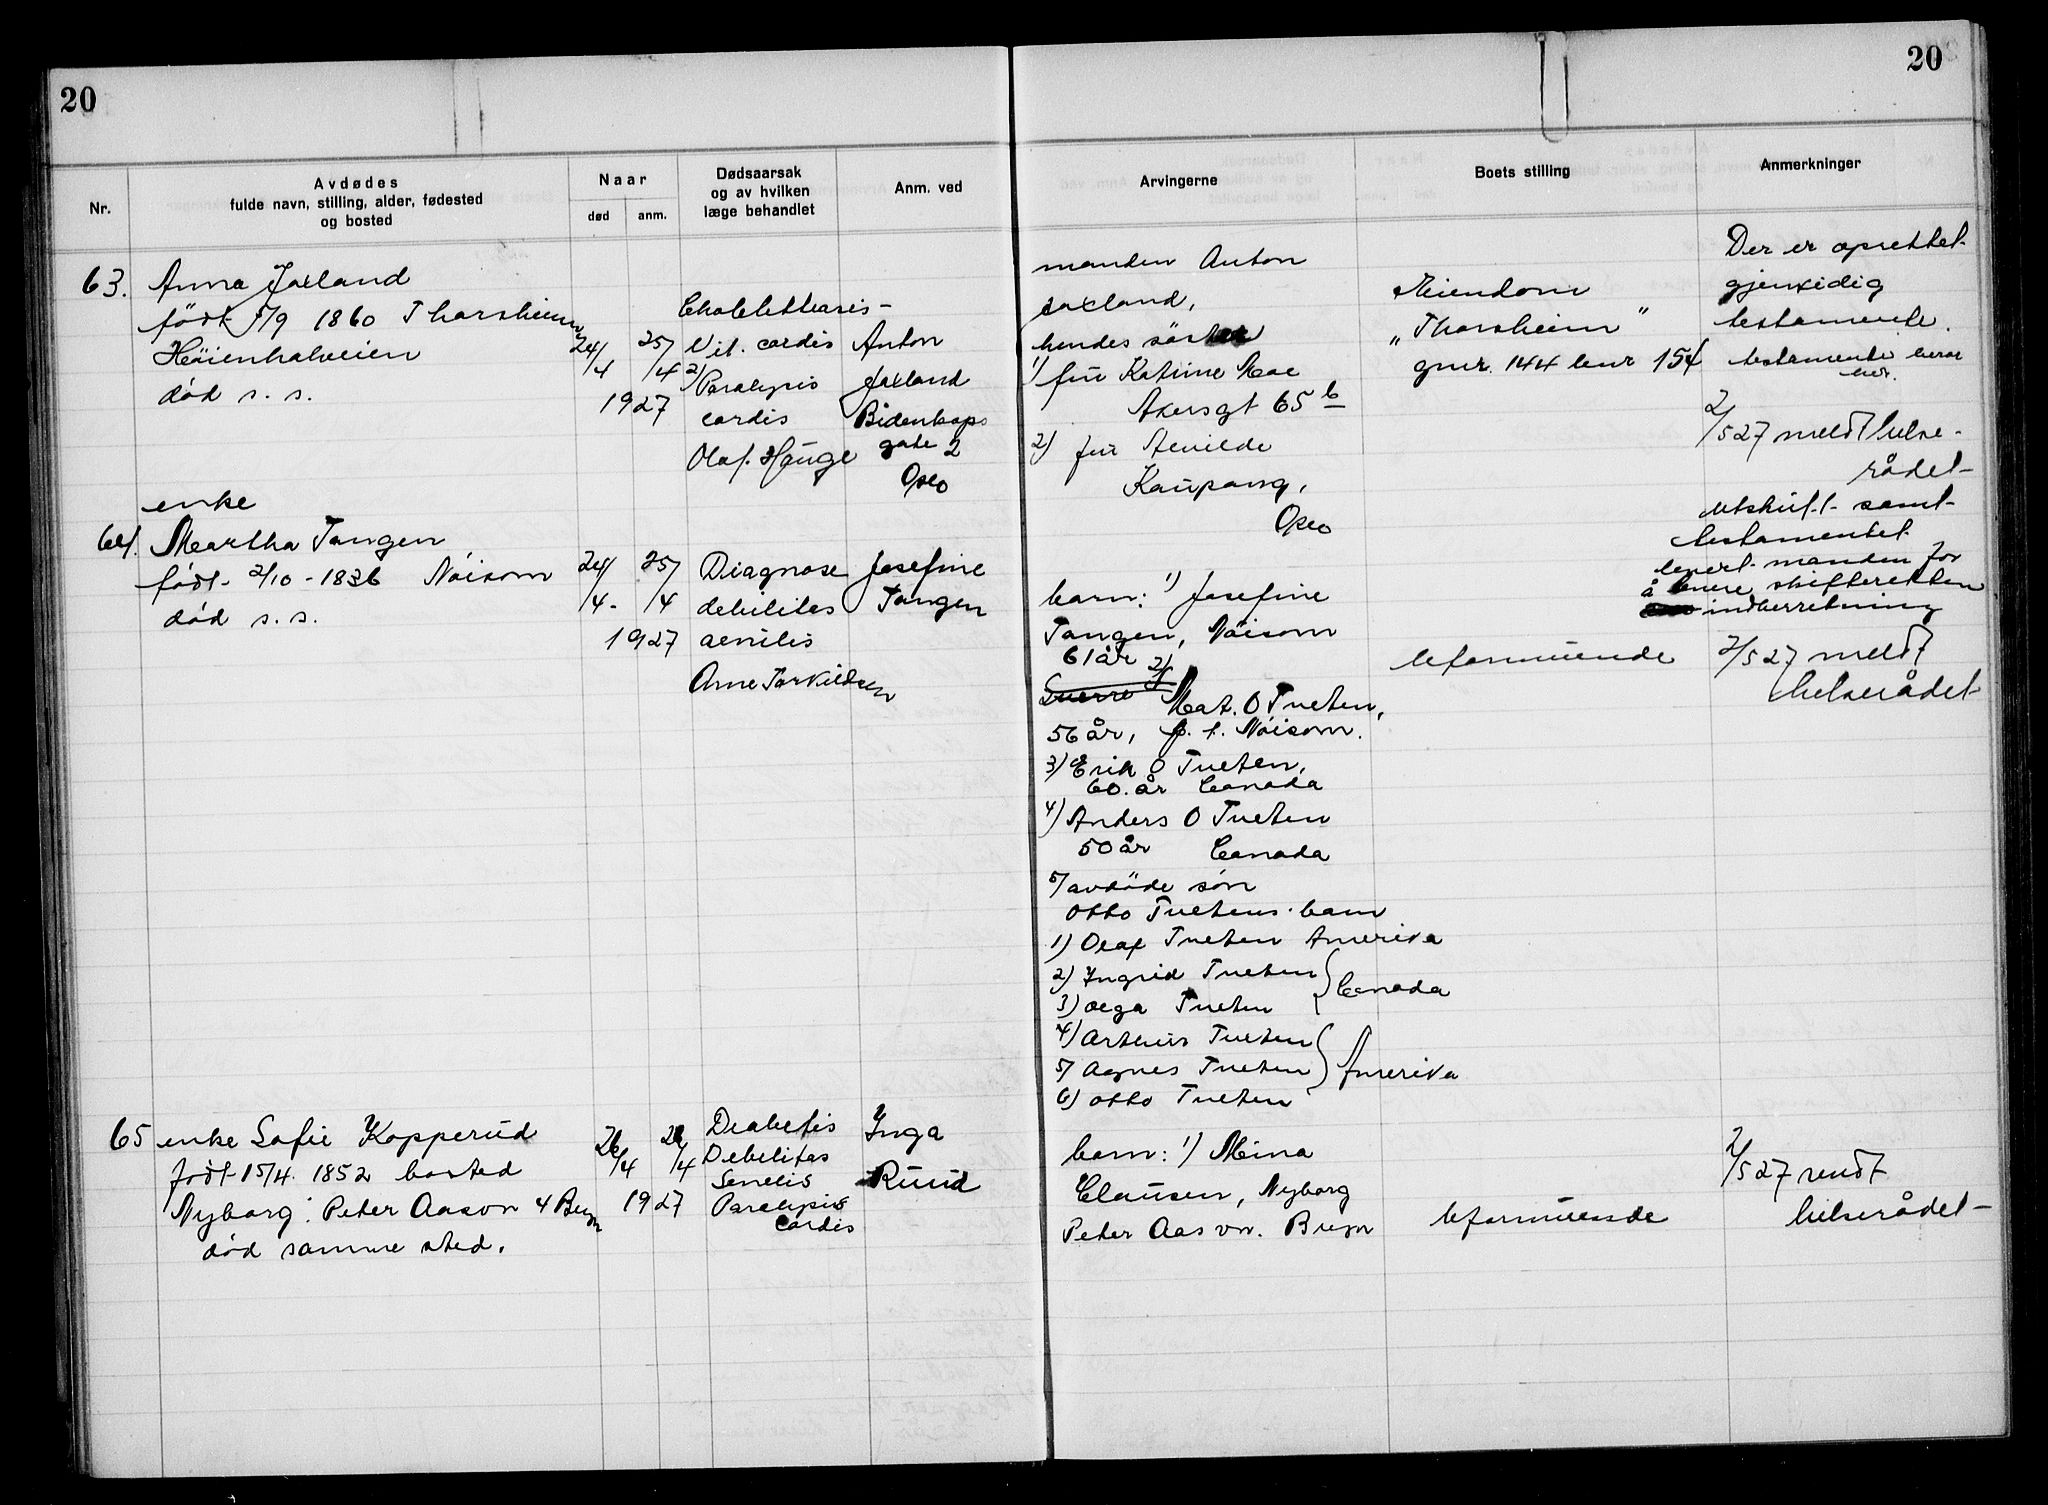 20
20
Nr.
Avdødes
fulde navn, stilling, alder, fødested
og bosted
Naar
død
anm.
Dødsaarsak
og av hvilken
læge behandlet
Anm. ved
Arvingerne
Boets stilling
Anmerkninger
63.
Anna Joxland
født 5/9 1860 Thorsheim
Høienhalveien
død s. s.
24/4
25/4
1927
Vit. cordis
2) Paralysis
cordis
Olaf. Hauge
Anton
Joxland
Bidenkaps
gate 2
Oslo
manden Anton
Joxland,
hendes søstre
1) fru Katrine Moe
Akersgt 65 b
2) fru Alvilde
Kaupang,
Oslo
Eiendom
"Thorsheim"
gnr. 144 bnr 154
Der er oprettet
gjensidig
testamente.
testamente beror
her.
2/5 27 meldt helse-
rådet
utskrift samt
testamentet
levert manden for
å skifteretten
indberetning
64.
enke
Martha Tangen
født 2/10 - 1836 Nöisom
død s. s.
24/4 -
25/4
1927
Diagnose
debilitas
senilis
Arne Torkildsen
Josefine
Tangen
barn: 1) Josefine
Tangen, Nöisom
61 år 2)
Sverre Mat. O Tveten,
56 år, p. t. Nöisom.
3) Erik O Tveten,
60. år Canada
4) Anders O Tveten
50 år Canada
5) avdöde sön
Otto Tvetens barn
1) Olaf Tveten Amerika
2) Ingrid Tveten
3) Olga Tveten
Canada
4) Arthur Tveten
5) Agnes Tveten
6) Otto Tveten
Amerika
uformuende
2/5 27 meldt
helserådet
65
enke Sofie Kopperud
født 15/4. 1852 bosted
Nyborg: Peter Aas vn 4 Bryn
død samme sted.
26/4
28/4
1927
Diabetis
Debelitas
Senelis
Paralysis
Cordis
Inga
Ruud
barn: 1) Mina
Clausen, Nyborg
Peter Aas vn. Bryn
uformuende
2/5 27 sendt
helserådet